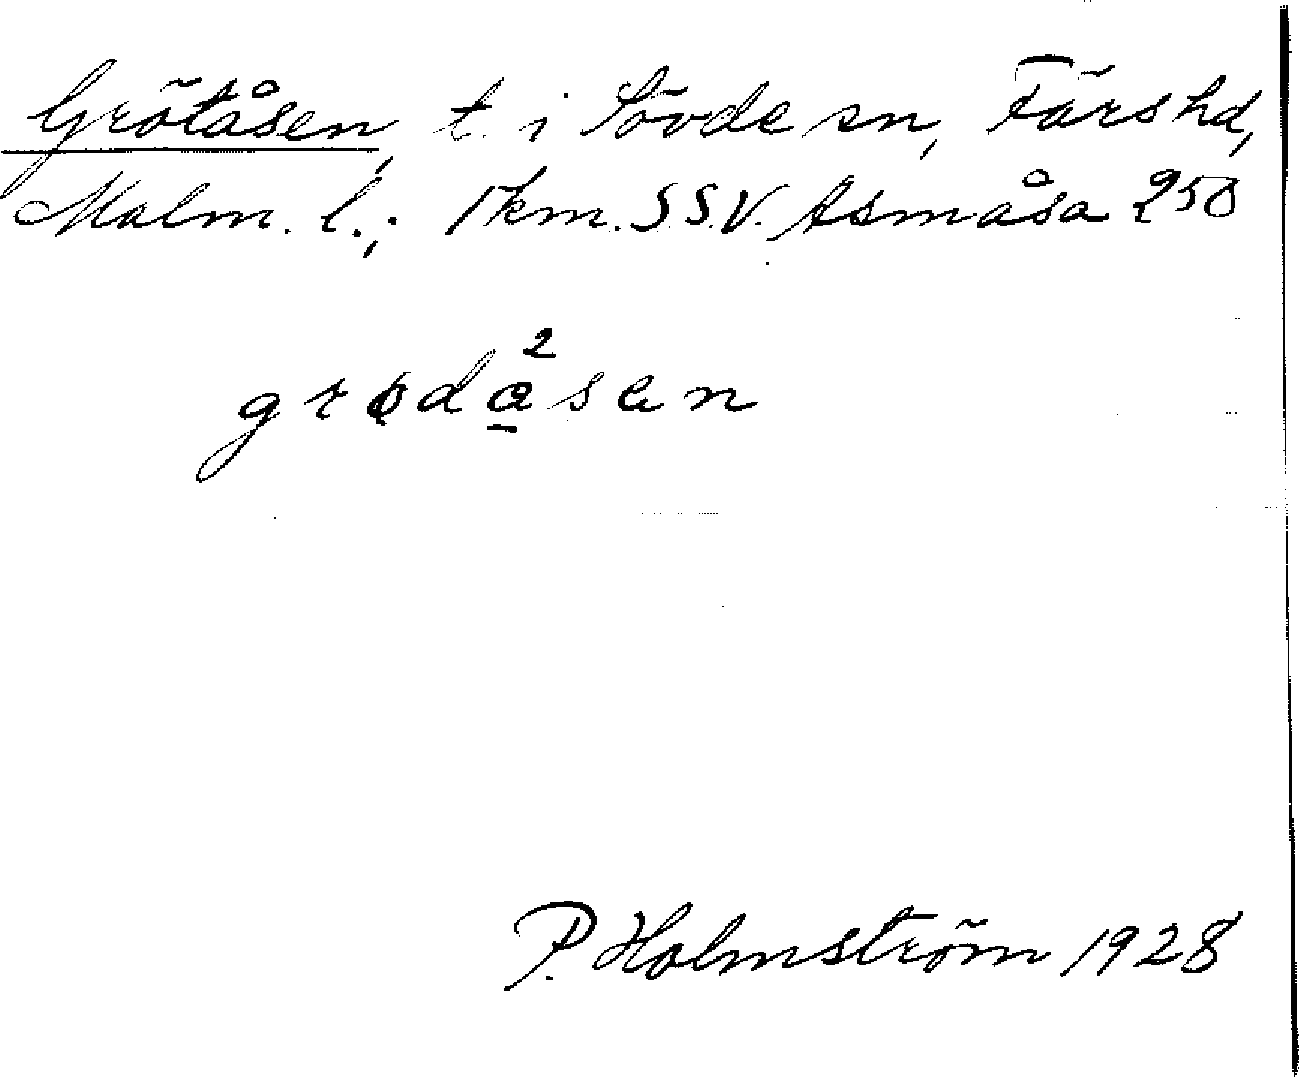 Grötåsen, t. i Sövde sn, Färs hd,
Malm. l.; 1 km. S.S.V. Asmåsa 250
grødå²sen
P. Holmström 1928